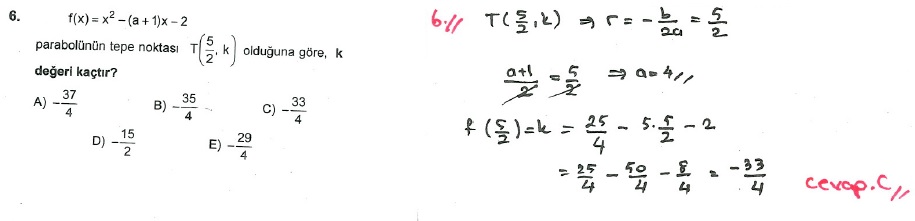 6. f(x) = x² – (a + 1)x – 2
parabolünün tepe noktası T(5/2, k) olduğuna göre, k
değeri kaçtır?
A) –37/4 B) –35/4 C) –33/4
D) –15/2 E) –29/4
6.// T(5/2, k) ⇒ r = –b/2a = 5/2
a+1/2 = 5/2 ⇒ a=4//
f(5/2) = k = 25/4 – 5·5/2 – 2
= 25/4 – 50/4 – 8/4 = –33/4
cevap.C//